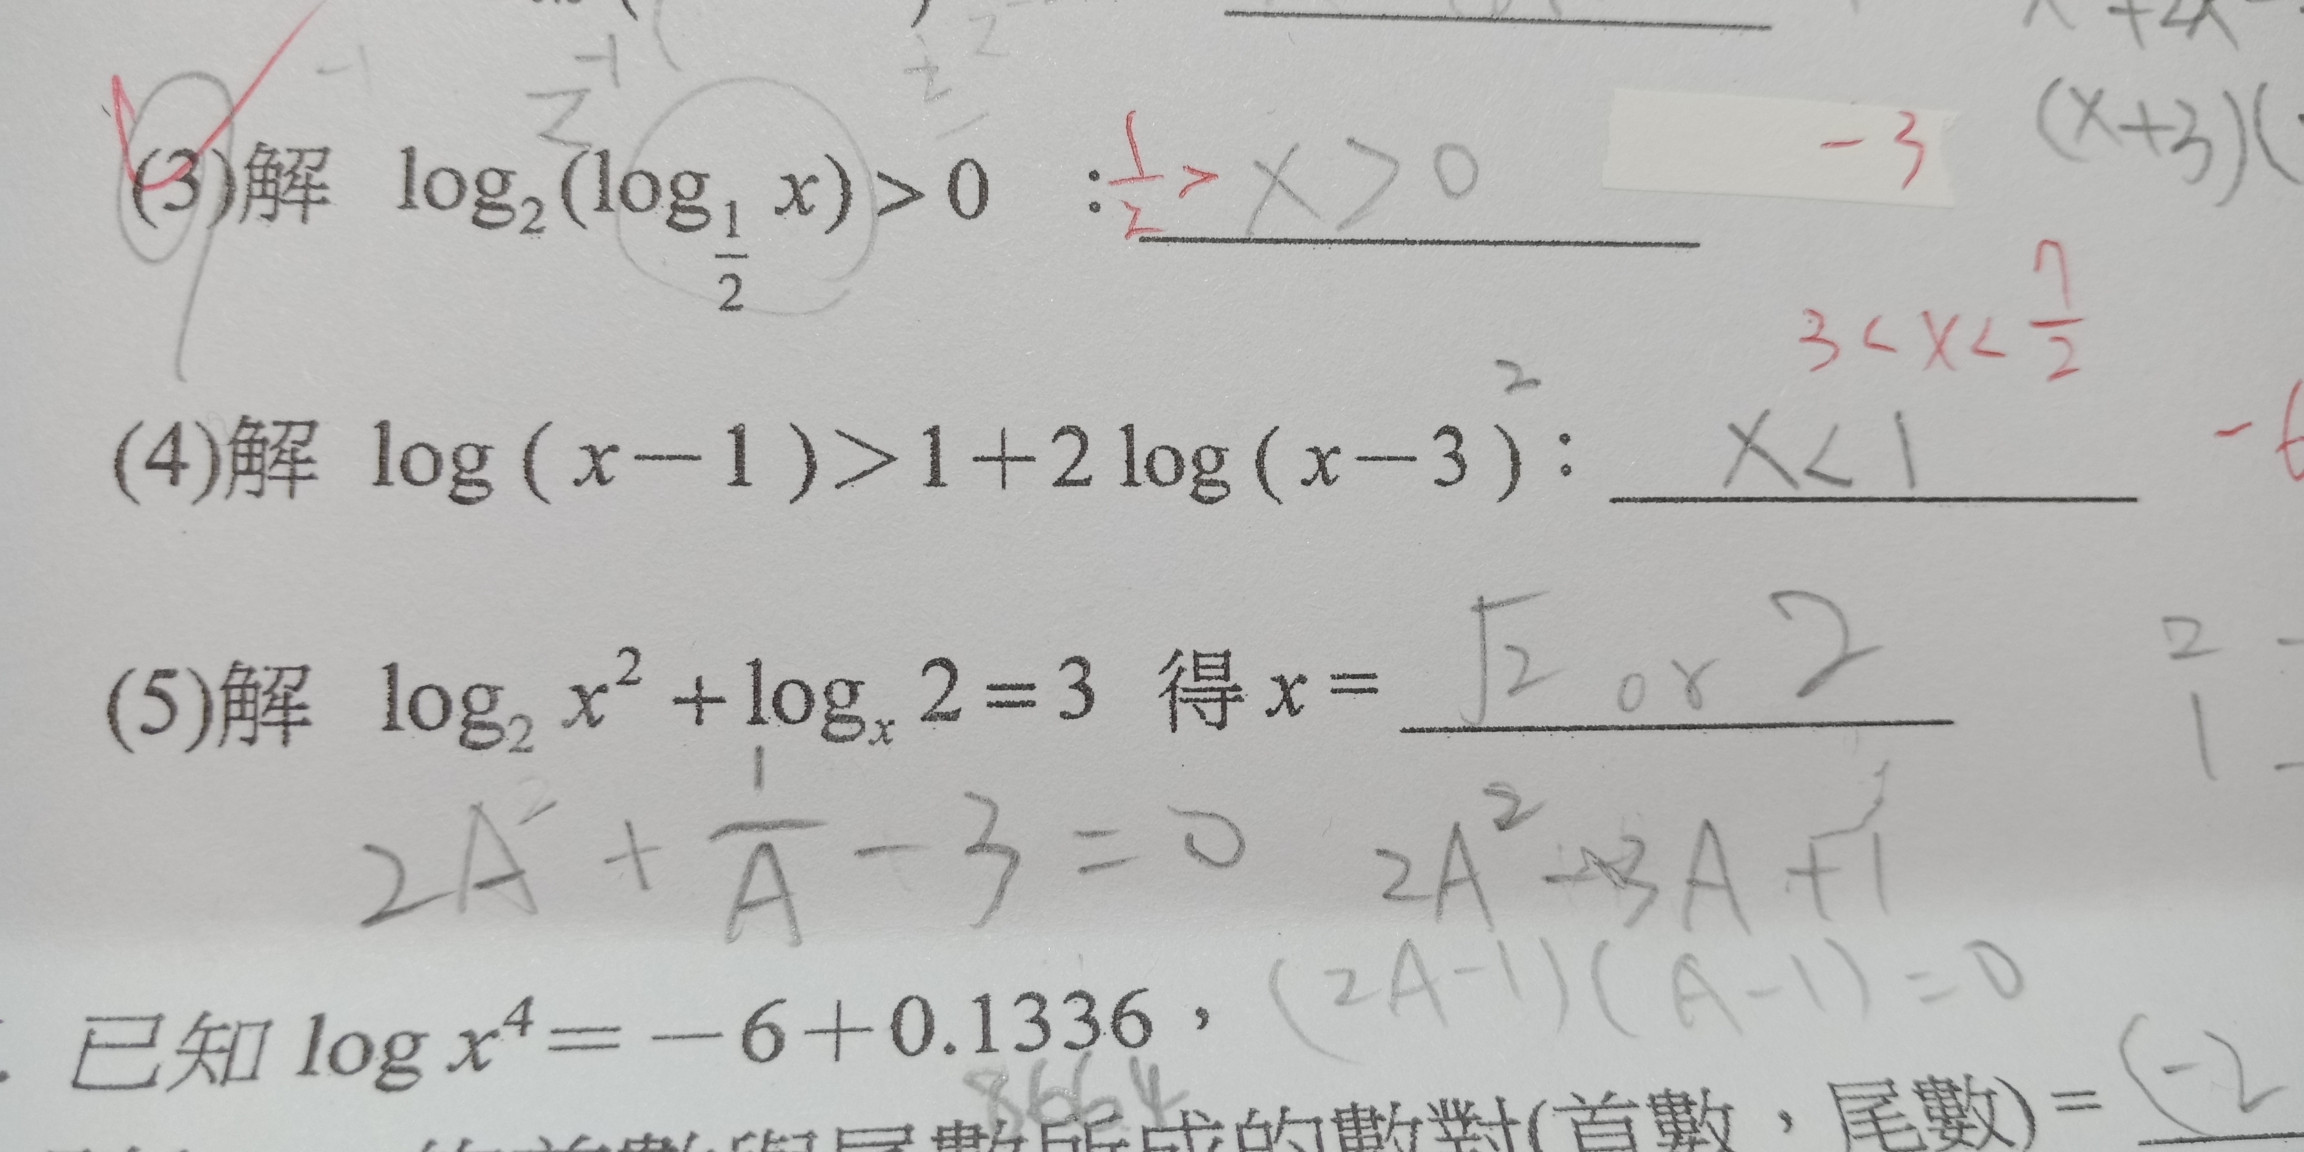 x + 2x -
-1
2⁻¹
(x+3)(
(3)解 log₂(log_{1/2} x) > 0 : 1/2 > x > 0 -3
3 < x < 7/2
(4)解 log ( x－1 )＞1＋2 log ( x－3 )² : x < 1 -6
(5)解 log₂ x² + logₓ 2 = 3 得 x = √2 or 2
2A + 1/A - 3 = 0 2A² - 3A + 1
(2A-1)(A-1) = 0
已知 log x⁴ = －6＋0.1336，
8664
數對(首數，尾數) = (-2